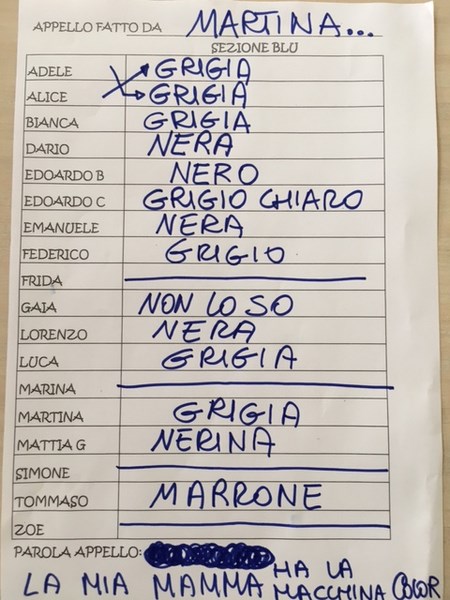 APPELLO FATTO DA MARTINA...
SEZIONE BLU
ADELE GRIGIA
ALICE GRIGIA
BIANCA GRIGIA
DARIO NERA
EDOARDO B NERO
EDOARDO C GRIGIO CHIARO
EMANUELE NERA
FEDERICO GRIGIO
FRIDA
GAIA NON LO SO
LORENZO NERA
LUCA GRIGIA
MARINA
MARTINA GRIGIA
MATTIA G NERINA
SIMONE
TOMMASO MARRONE
ZOE
PAROLA APPELLO:
LA MIA MAMMA HA LA MACCHINA COLOR